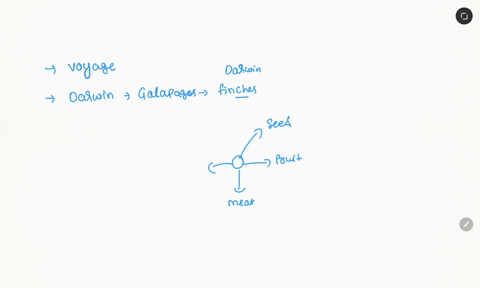 → voyage
Darwin
→ Darwin → Galapages → finches
seed
fruit
meat